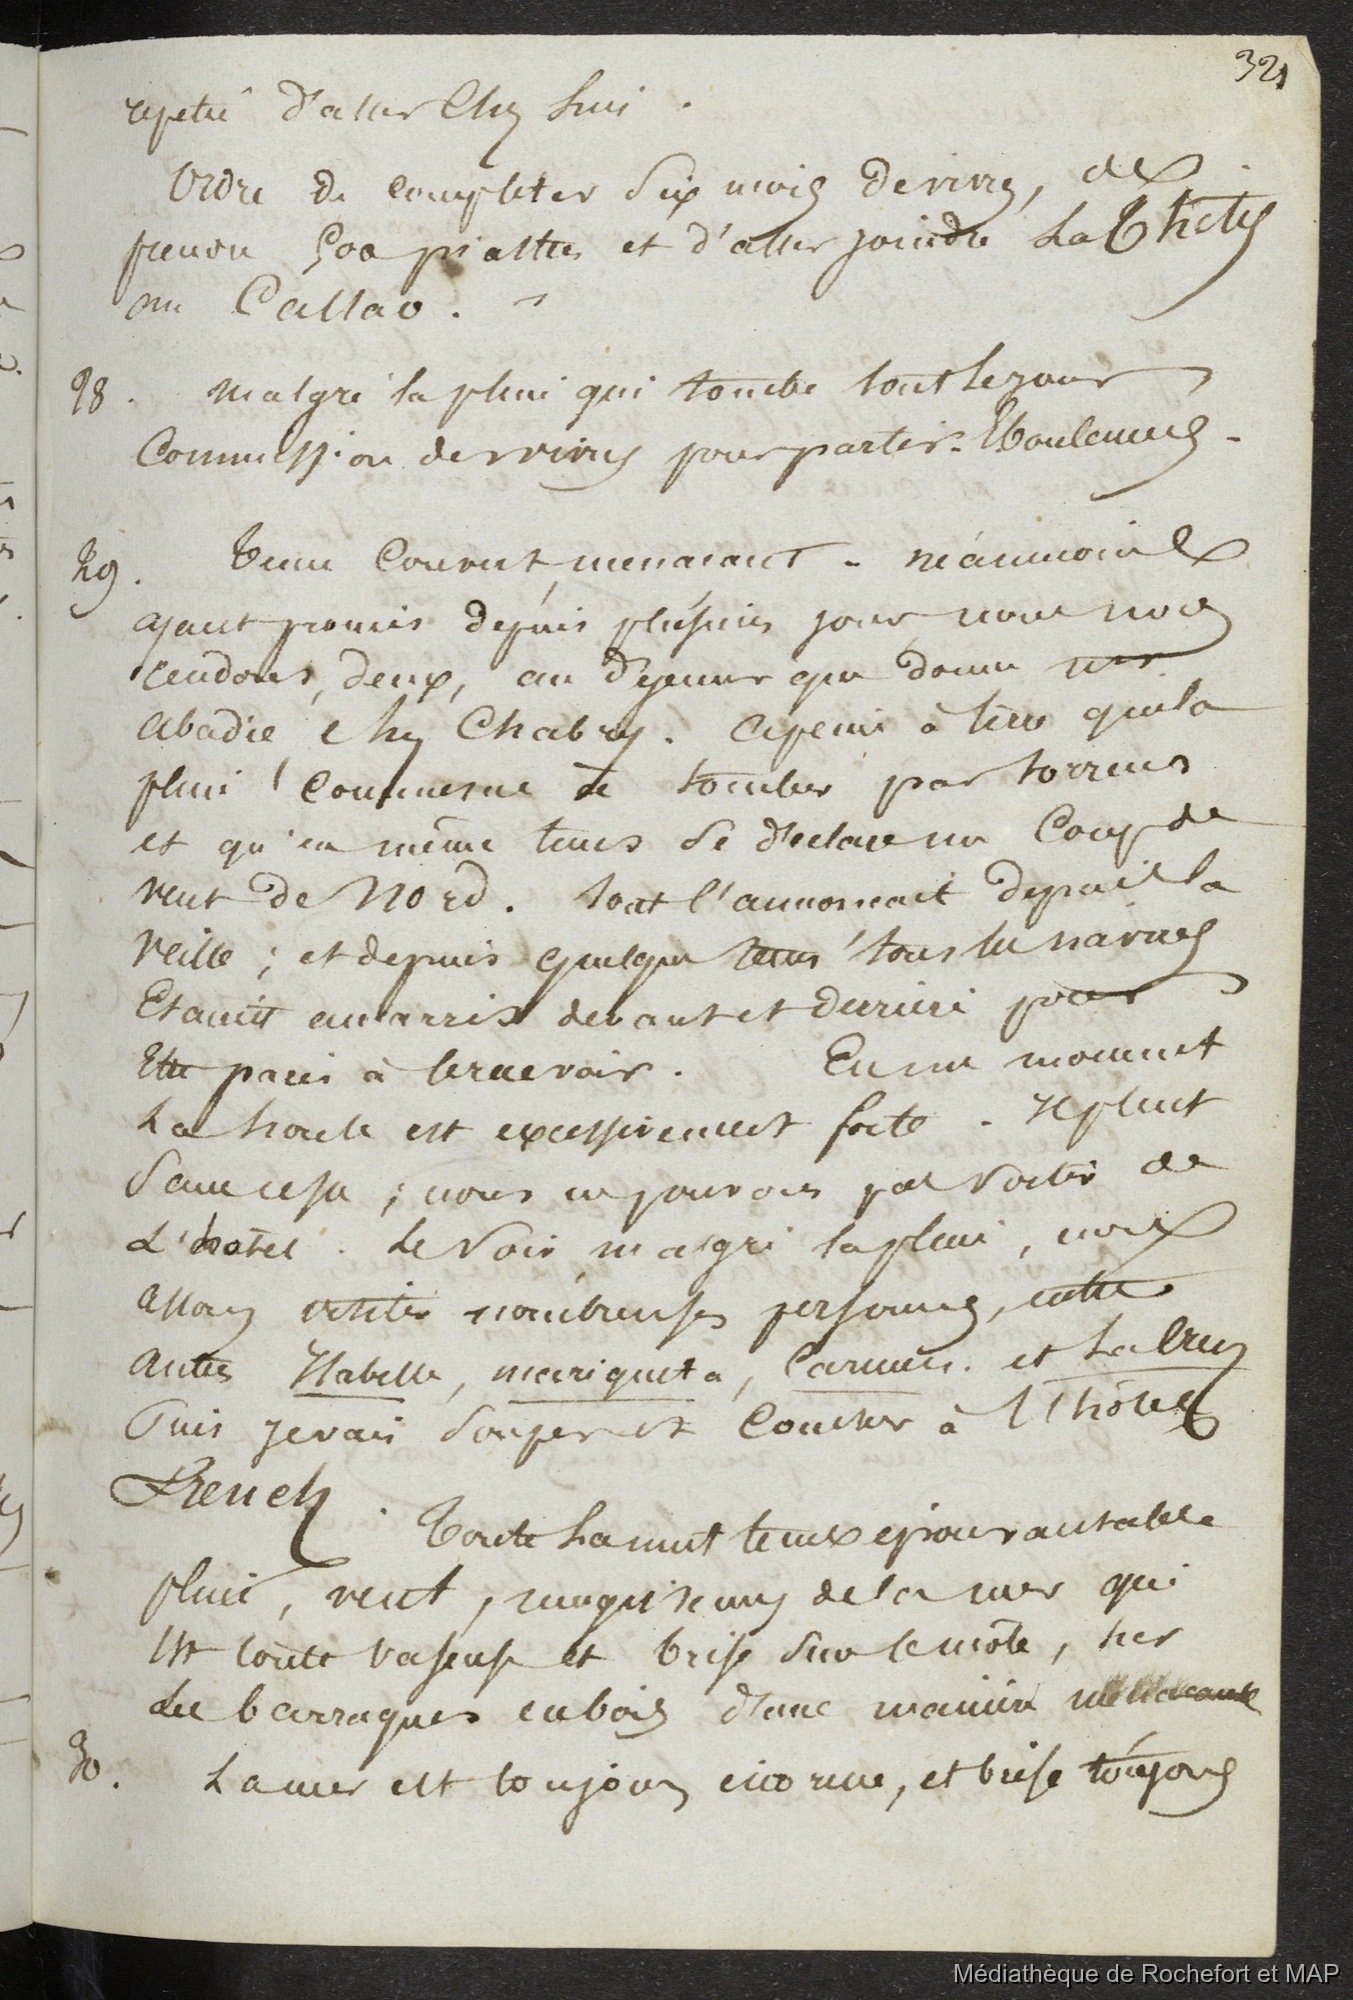 321
repeter d'aller Chez lui.
Ordre de completer six mois de vivres, de
prendre 500 piastres et d'aller joindre La Thetis
au Callao.
28. malgré la pluie qui tombe tout le jour
Commission de vivres pour partir.
29. Tems Couvert, menacant - néanmoins
ayant promis depuis plusieurs jours, nous nous
rendons, deux, au dejeuner que donne
abadie chez Chabry. apeine à terre que la
pluie Commence à tomber par torrens
et qu'en même tems se declare un Coup de
vent de Nord. tout l'annoncait depuis la
veille; et depuis quelque tems tous les navires
Etaient amarrés devant et derriere pour
Etre parés à le recevoir. En un moment
La houle est excessivement forte. Il pleut
sans cesse; nous ne pouvons pas sortir de
L'hotel. le soir, malgré la pluie, nous
allons visiter nombreuses personnes, entre
autres Isabelle, mariquita, Carmen. et La Cruz
Puis je vais souper et Coucher à l'hôtel
French. Toute La nuit tems epouvantable
pluie, vent, mugissemens de la mer qui
est toute vaseuse et brise sur le môle, sur
des barraques en bois d'une manière menacante
30. La mer est toujours enorme, et brise toujours
Médiathèque de Rochefort et MAP